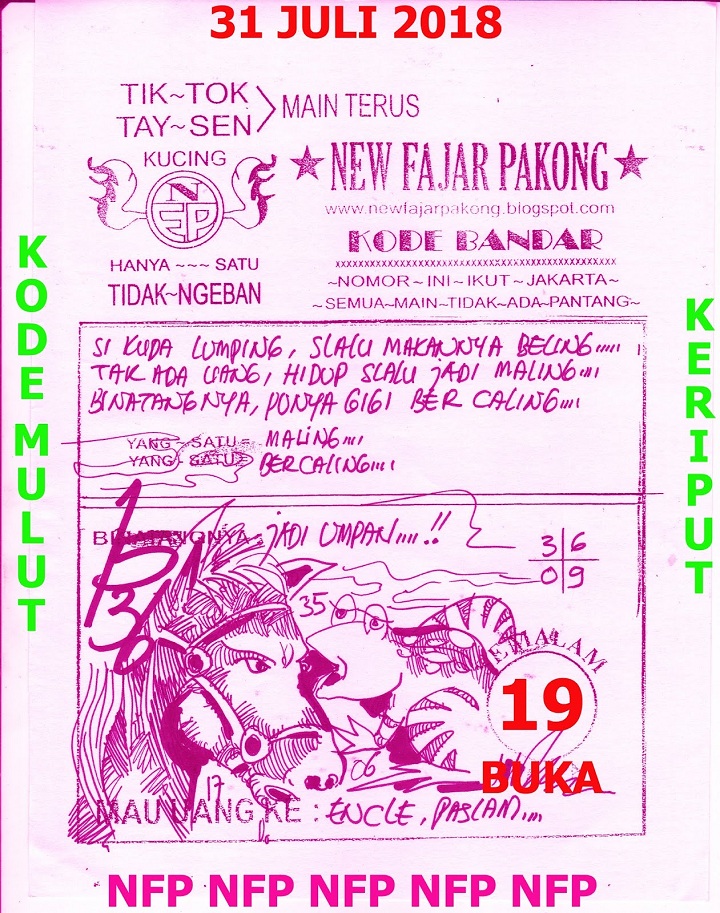 31 JULI 2018
TIK~TOK
TAY~SEN
MAIN TERUS
KUCING
NFP
HANYA ~~~ SATU
TIDAK~NGEBAN
★NEW FAJAR PAKONG★
www.newfajarpakong.blogspot.com
KODE BANDAR
xxxxxxxxxxxxxxxxxxxxxxxxxxxxxxxxxxxxxxxxxx
~NOMOR~INI~IKUT~JAKARTA~
~SEMUA~MAIN~TIDAK~ADA~PANTANG~
KODE MULUT
KERIPUT
SI KUDA LUMPING, SLALU MAKANNYA BELING.....
TAK ADA UANG, HIDUP SLALU JADI MALING....
BINATANGNYA, PUNYA GIGI BER CALING....
YANG~SATU= MALING....
YANG~SATU= BERCALING....
JADI UMPAN....!!
3 6
0 9
35
19
BUKA
06
17
MAU UANG KE : ENCLE, PASLAM....
NFP NFP NFP NFP NFP